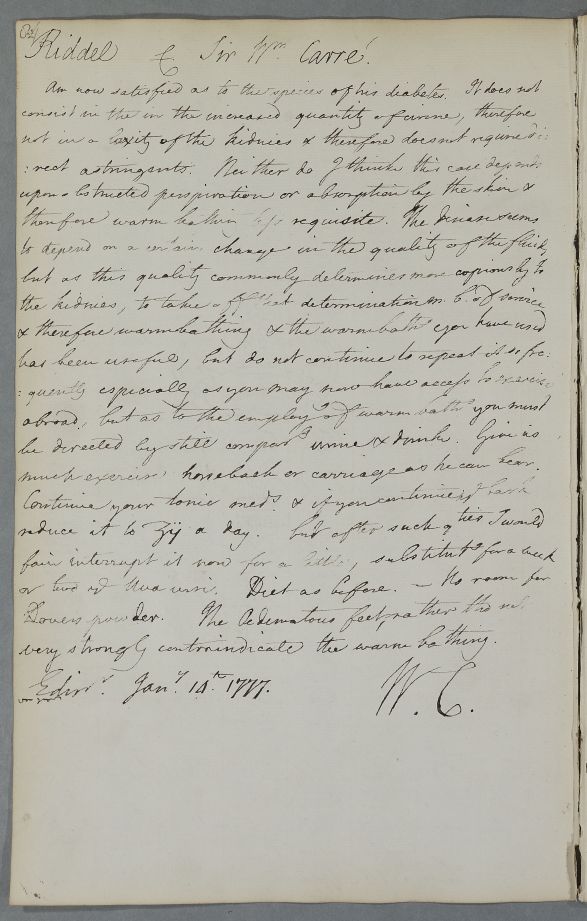 Riddel C Sir Wm. Carre.
Am now satisfied as to the species of his diabetes. It does not
consist in the in the increased quantity of urine, therefore
not in a laxity of the kidnies & therefore does not require di:
:rect astringents. Neither do I think this case depends
upon obstructed perspiration or absorption by the skin &
therefore warm bathing is requisite. The disease seems
to depend on a certain change in the quality of the fluids,
but as this quality commonly determines more copiously to
the kidnies, to take off that determination m. b. of service
& therefore warm bathing & the warm baths you have used
has been useful, but do not continue to repeat it so fre:
:quently especially as you may now have access to exercise
abroad, but as to the employt. of warm baths you must
be directed by still comparg urine & drinks. Give as
much exercise horseback or carriage as he can bear.
Continue your tonic meds & if you continued bark
reduce it to ʒij a day. But after such qties I would
fain interrupt it now for a little, substitutg for a week
or two Uva ursi. Diet as before. — No room for
Dovers powder. The Œdematous feet, rather tho not
very strongly contraindicate the warm bathing.
Edinr. Jany. 14th 1777. W. C.